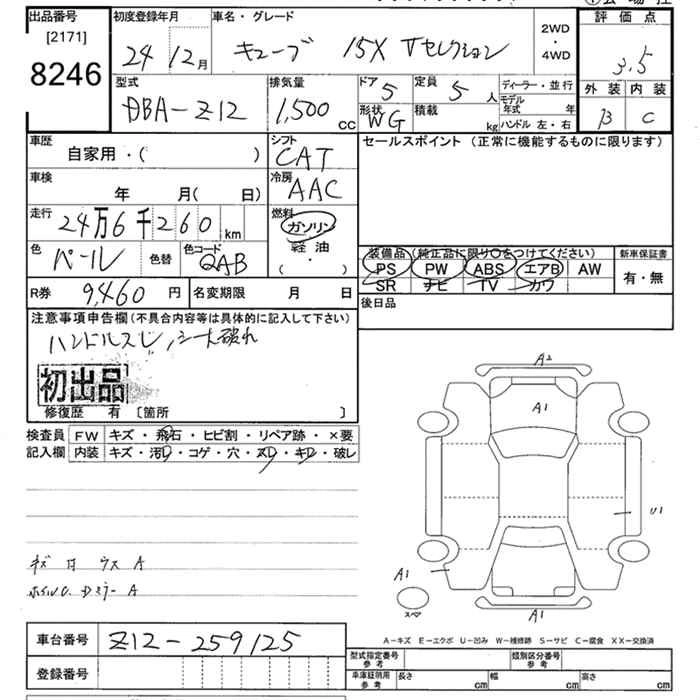 出品番号
[2171]
8246
初度登録年月
24 12月
車名・グレード
キューブ 15X Vセレクション
2WD
・
4WD
評価点
3.5
外装 内装
B C
型式
DBA-Z12
排気量
1,500 cc
ドア 5
形状 WG
定員 5 人
積載 kg
ディーラー・並行
モデル年式 年
ハンドル 左・右
車歴
自家用・( )
シフト
CAT
車検
年 月( 日)
冷房
AAC
走行
24万6千260 km
燃料
ガソリン
軽油
( )
色
パール
色替
色コード
QAB
セールスポイント (正常に機能するものに限ります)
装備品 (純正品に限り○をつけてください)
PS PW ABS エアB AW
SR ナビ TV カワ
新車保証書
有・無
R券 9,460 円
名変期限 月 日
後日品
注意事項申告欄 (不具合内容等は具体的に記入して下さい)
ハンドルスレ, シート破れ
初出品
修復歴 有 [箇所 ]
検査員 FW キズ・飛石・ヒビ割・リペア跡・×要
記入欄 内装 キズ・汚レ・コゲ・穴・スレ・キレ・破レ
A2
A1
U1
A1
A1
スペア
キズ
A
A
車台番号 Z12-259125
登録番号
A-キズ E-エクボ U-凹み W-補修跡 S-サビ C-腐食 XX-交換済
型式指定番号 参考
類別区分番号 参考
車庫証明用 参考
長さ cm 幅 cm 高さ cm